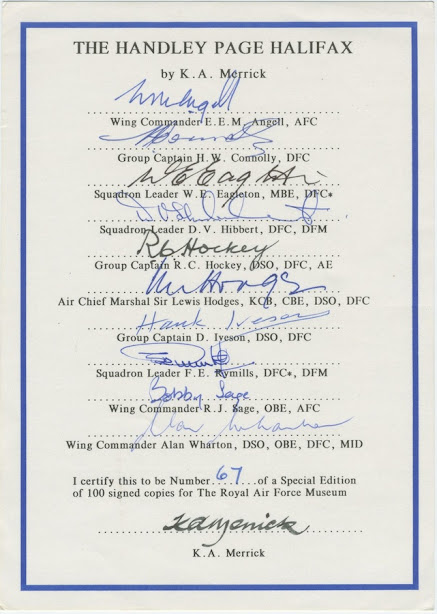 THE HANDLEY PAGE HALIFAX
by K.A. Merrick
Wing Commander E.E.M. Angell, AFC
Group Captain H.W. Connolly, DFC
W E Eagleton
Squadron Leader W.E. Eagleton, MBE, DFC*
Squadron Leader D.V. Hibbert, DFC, DFM
R C Hockey
Group Captain R.C. Hockey, DSO, DFC, AE
Air Chief Marshal Sir Lewis Hodges, KCB, CBE, DSO, DFC
Hank Iveson
Group Captain D. Iveson, DSO, DFC
Squadron Leader F.E. Rymills, DFC*, DFM
Bobby Sage
Wing Commander R.J. Sage, OBE, AFC
Alan Wharton
Wing Commander Alan Wharton, DSO, OBE, DFC, MID
I certify this to be Number 67 of a Special Edition
of 100 signed copies for The Royal Air Force Museum
K A Merrick
K.A. Merrick